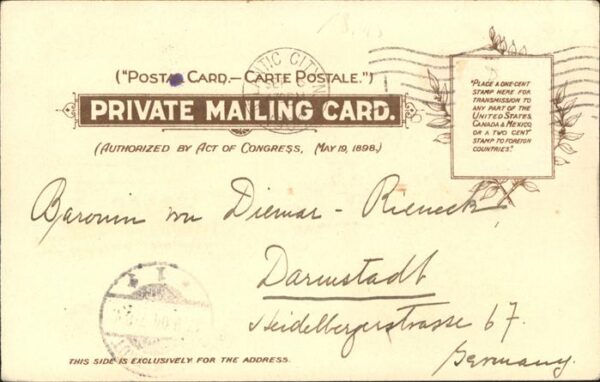 ("Postal Card.—Carte Postale.")
PRIVATE MAILING CARD.
(Authorized by Act of Congress, May 19, 1898.)
"Place a one cent
stamp here for
transmission to
any part of the
United States,
Canada & Mexico,
or a two cent
stamp to foreign
countries."
ANTIC CITY N
Baronin von Diemar - Rieneck
Darmstadt
Heidelbergerstrasse 67.
Germany.
THIS SIDE IS EXCLUSIVELY FOR THE ADDRESS.